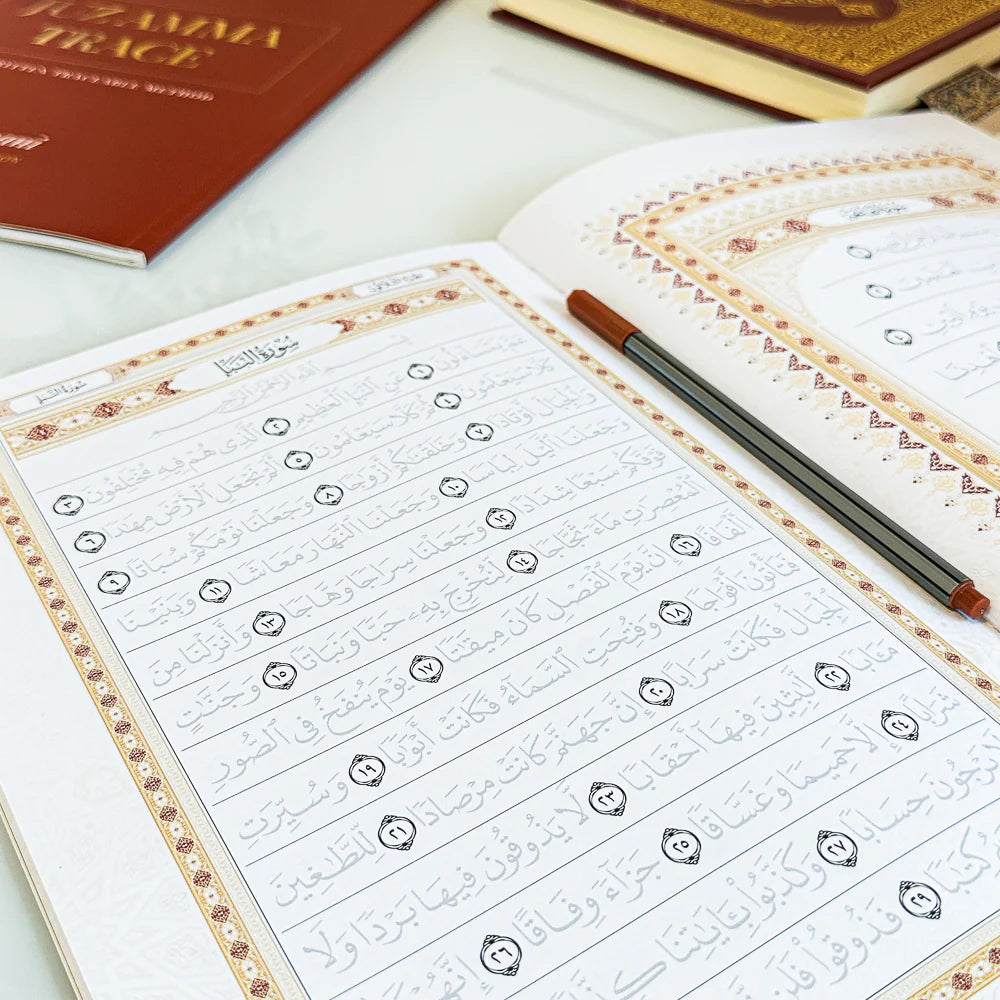 JUZ AMMA
TRACE
سُورَةُ النَّبَإِ
عَمَّ يَتَسَآءَلُونَ ١ عَنِ ٱلنَّبَإِ ٱلْعَظِيمِ ٢ ٱلَّذِى هُمْ فِيهِ مُخْتَلِفُونَ ٣
كَلَّا سَيَعْلَمُونَ ٤ ثُمَّ كَلَّا سَيَعْلَمُونَ ٥ أَلَمْ نَجْعَلِ ٱلْأَرْضَ مِهَٰدًا ٦
وَٱلْجِبَالَ أَوْتَادًا ٧ وَخَلَقْنَٰكُمْ أَزْوَٰجًا ٨ وَجَعَلْنَا نَوْمَكُمْ سُبَاتًا ٩
وَجَعَلْنَا ٱلَّيْلَ لِبَاسًا ١٠ وَجَعَلْنَا ٱلنَّهَارَ مَعَاشًا ١١ وَبَنَيْنَا
فَوْقَكُمْ سَبْعًا شِدَادًا ١٢ وَجَعَلْنَا سِرَاجًا وَهَّاجًا ١٣ وَأَنزَلْنَا مِنَ
ٱلْمُعْصِرَٰتِ مَآءً ثَجَّاجًا ١٤ لِّنُخْرِجَ بِهِۦ حَبًّا وَنَبَاتًا ١٥ وَجَنَّٰتٍ
أَلْفَافًا ١٦ إِنَّ يَوْمَ ٱلْفَصْلِ كَانَ مِيقَٰتًا ١٧ يَوْمَ يُنفَخُ فِى ٱلصُّورِ
فَتَأْتُونَ أَفْوَاجًا ١٨ وَفُتِحَتِ ٱلسَّمَآءُ فَكَانَتْ أَبْوَٰبًا ١٩ وَسُيِّرَتِ
ٱلْجِبَالُ فَكَانَتْ سَرَابًا ٢٠ إِنَّ جَهَنَّمَ كَانَتْ مِرْصَادًا ٢١ لِّلطَّٰغِينَ
مَـَٔابًا ٢٢ لَّٰبِثِينَ فِيهَآ أَحْقَابًا ٢٣ لَّا يَذُوقُونَ فِيهَا بَرْدًا وَلَا
شَرَابًا ٢٤ إِلَّا حَمِيمًا وَغَسَّاقًا ٢٥ جَزَآءً وِفَاقًا ٢٦ إِنَّهُمْ
لَا يَرْجُونَ حِسَابًا ٢٧ وَكَذَّبُوا۟ بِـَٔايَٰتِنَا
كِتَٰبًا ٢٩ فَذُوقُوا۟ فَلَن